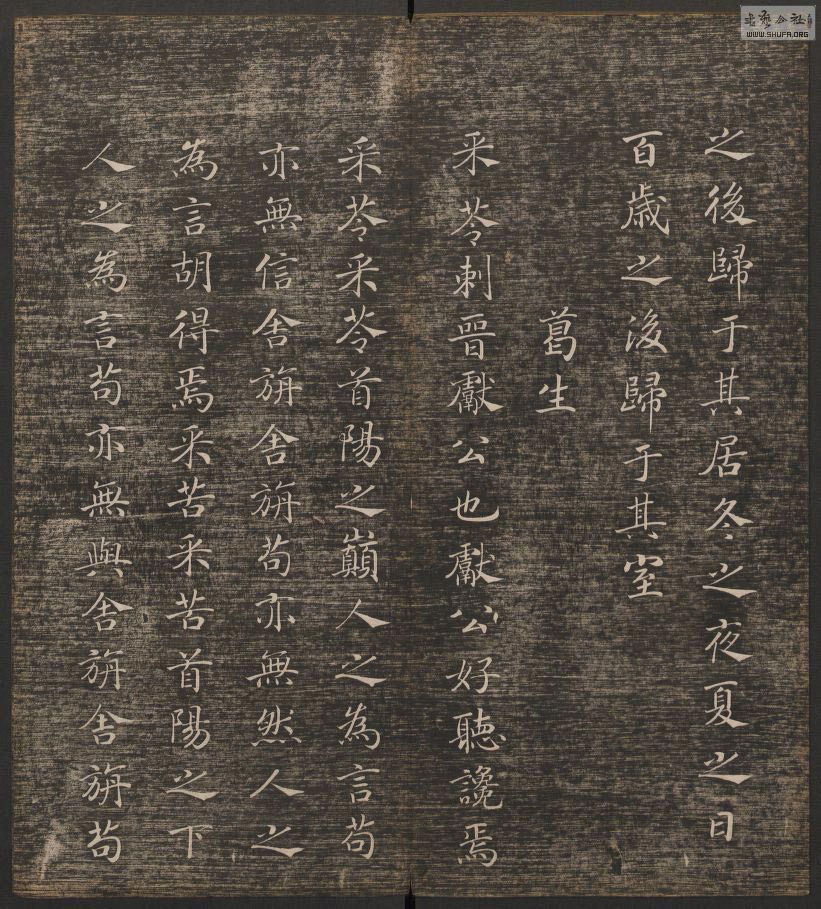 之後歸于其居冬之夜夏之日
百歲之後歸于其室
葛生
采苓刺晉獻公也獻公好聽讒焉
采苓采苓首陽之巔人之為言苟
亦無信舍旃舍旃苟亦無然人之
為言胡得焉采苦采苦首陽之下
人之為言苟亦無與舍旃舍旃苟
書藝公社
WWW.SHUFA.ORG